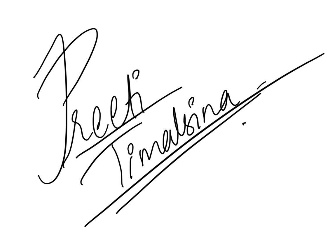 Preeti
Timalsina